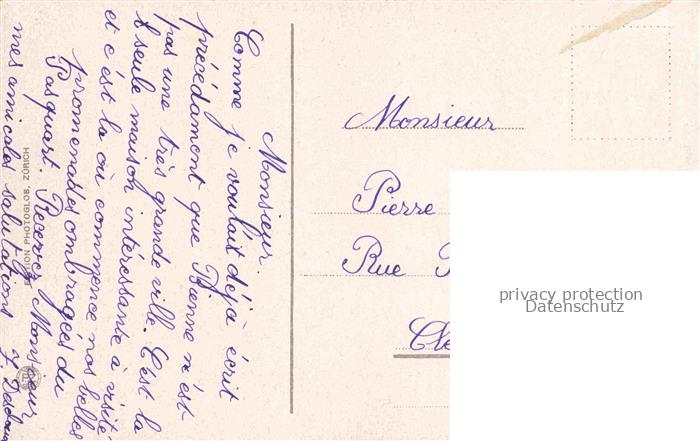 Monsieur.
Comme je voulais déjà écrit
précédamont que Bienne n'est
pas une très grande ville. C'est la
seule maison intéressante à visité
et c'est la où commence nos belles
promenades ombragées du
Pasquart. Recevez Monsieur
mes amicales salutations
EDITION PHOTOGLOB, ZÜRICH
Monsieur
Pierre
Rue
privacy protection
Datenschutz